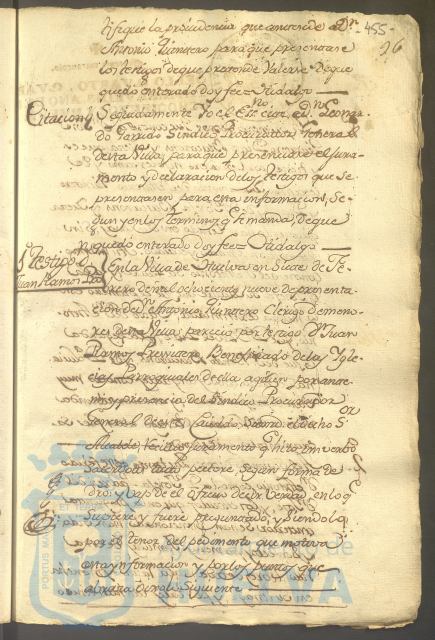 455
96
tifique la providencia que antecede a Dn
Antonio Quintero para que presentase
los testigos de que pretende Valerse de que
quedó enterado doy fee = Hidalgo
Citacion
Seguidamente Yo el Essno cite a Dn Leonar
do Garrido Sindico Procurador General
de esta Villa, para que presenciare el jura-
mento y declaracion de los testigos que se
presentasen para esta informacion, Se-
gun y en los terminos q se manda, de que
quedó enterado doy fee = Hidalgo
1 Testigo
Juan Ramos
En la Villa de Huelva en Siete de Fe-
brero de mil ochocientos nueve de presenta-
cion de Dn Antonio Quintero Clerigo de meno-
res de esta Villa parecio por testigo Dn Juan
Ramos Presvitero Beneficiado de las Ygle-
cias Parroquiales de ella a quien por ante
mi y presencia del Sindico Procurador
General de este Cavildo, Su dho S
Alcalde, recibio juramento q hizo in verbo
Sacerdotis tacto pectore segun forma de
dro; y bajo de el ofrecio decir Verdad en lo q
Supiere y fuere preguntado, y siendolo
por el tenor del pedimento que motiva
esta ynformacion y por los puntos que
abraza dijo lo Siguiente
PORTUS MARIS ET TERRAE CUSTODIA
Ayuntamiento de
HUELVA